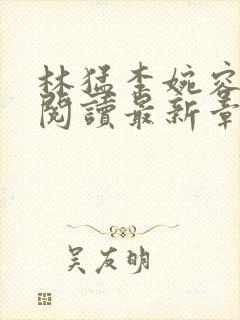 林猛李婉容
閱讀最新章
吴友明